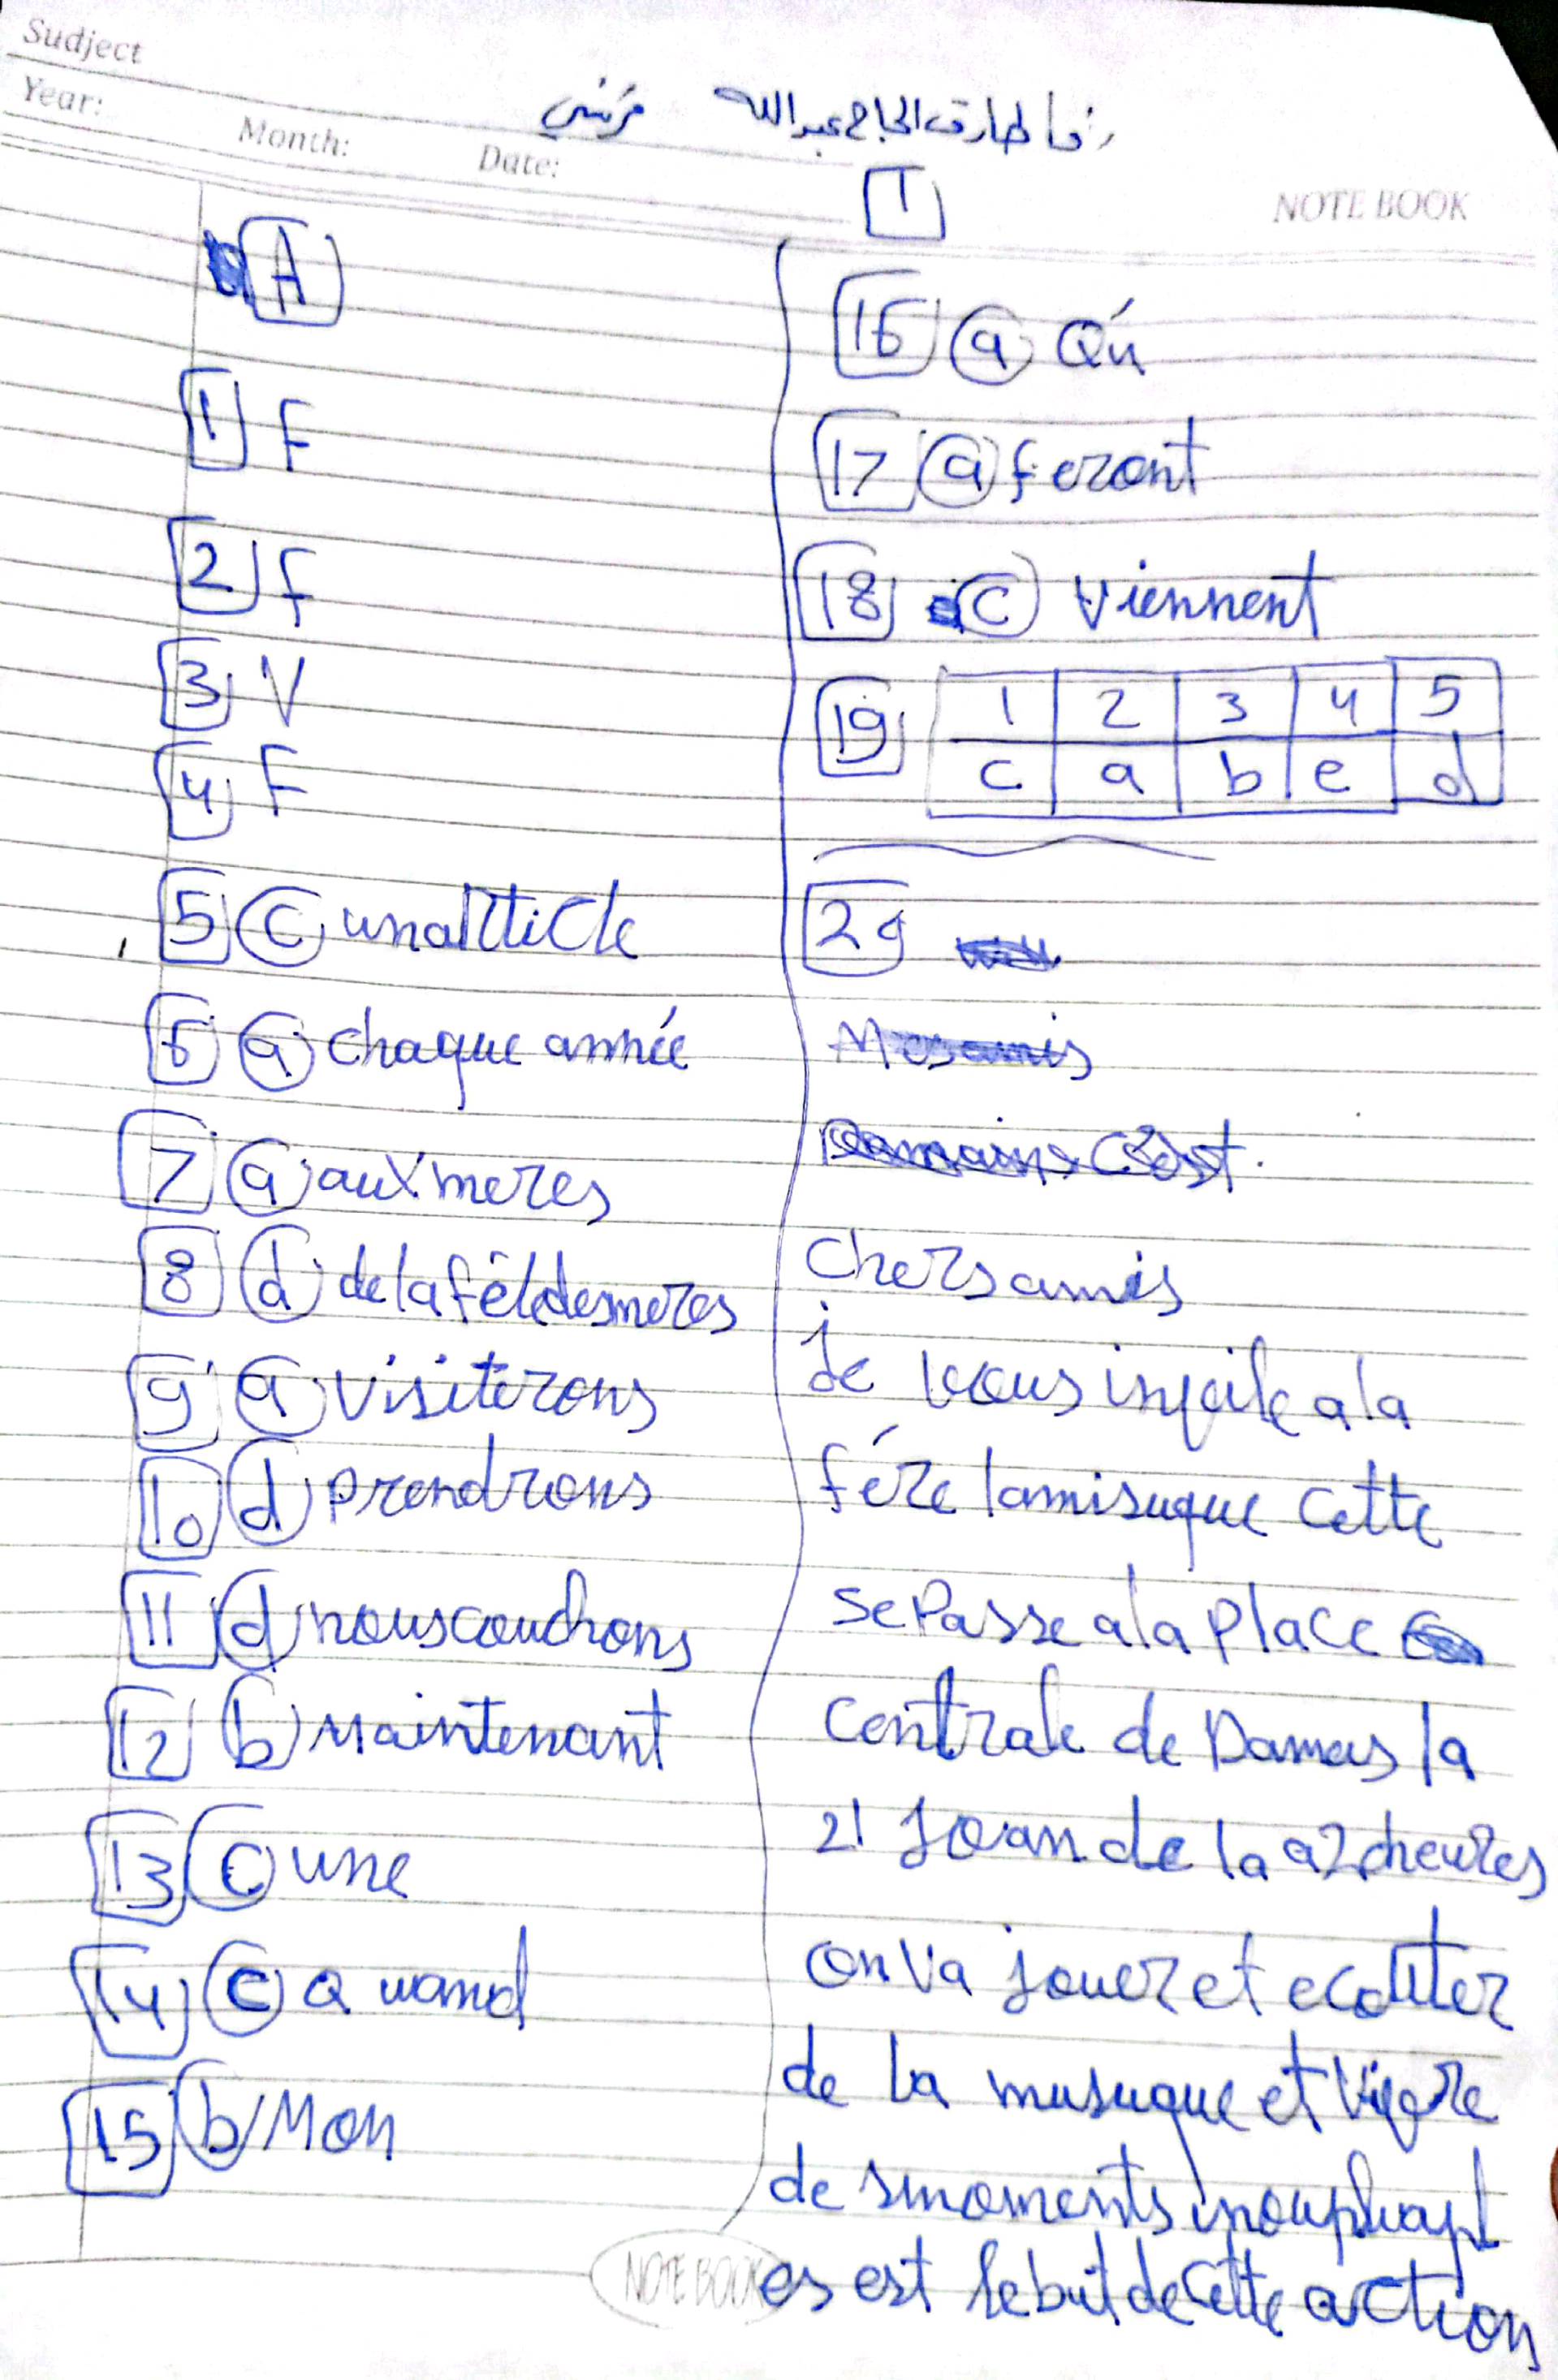 Sudject
Year:
Month:
Date:
NOTE BOOK
طارق الحاج عبدالله
1
A
1 F
2 f
3 V
4 F
5 c un article
6 a chaque année
7 a aux meres
8 d de la fête des meres
9 a visiterons
10 d prendrons
11 d nous couchons
12 b Maintenant
13 c une
14 c Quand
15 b Mon
16 a Qu
17 a feront
18 c Viennent
19
1 2 3 4 5
c a b e d
Chers amis
je vous a la
lamisuque cette
se Passe a la place
centrale de Damas la
21 de la
on va jouer et ecouter
de la musuque et
de smoments
es est le but de cette action
NOTE BOOK